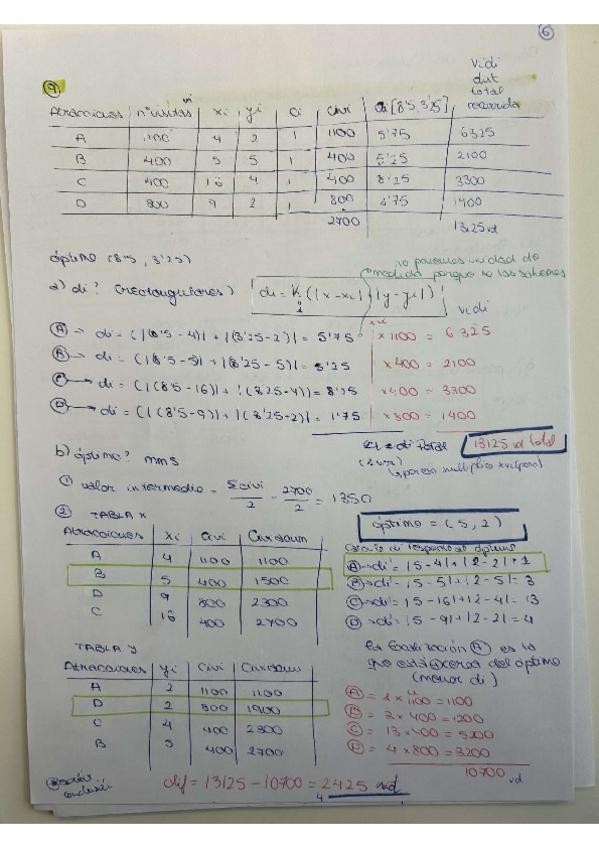 6
9
Atracciones nº visitas vi xi yi ci civi di [8'5, 3'25] vidi dist total recorrida
A 1100 4 2 1 1100 5'75 6325
B 400 5 5 1 400 5'25 2100
C 400 16 4 1 400 8'25 3300
D 800 9 2 1 800 1'75 1400
2700 13125 vd
óptimo (8'5, 3'25)
no ponemos unidad de medida porque no las sabemos
a) di? (rectangulares) di = K (|x-xi| + |y-yi|)
vidi
A → di = (|(8'5-4)| + |(3'25-2)| = 5'75 x1100 = 6325
B → di = (|(8'5-5)| + |(3'25-5)| = 5'25 x400 = 2100
C → di = (|(8'5-16)| + |(3'25-4)| = 8'25 x400 = 3300
D → di = (|(8'5-9)| + |(3'25-2)| = 1'75 x800 = 1400
di total 13125 vd total
b) óptimo? mms
1 valor intermedio = Σcivi/2 = 2700/2 = 1350
2 TABLA X
óptimo = (5, 2)
Atracciones xi civi Civiacum
A 4 1100 1100
B 5 400 1500
D 9 800 2300
C 16 400 2700
di respecto al óptimo
A → di = |5-4|+|2-2| = 1
B → di = |5-5|+|2-5| = 3
C → di = |5-16|+|2-4| = 13
D → di = |5-9|+|2-2| = 4
TABLA Y
Atracciones yi civi Civiacum
A 2 1100 1100
D 2 800 1900
C 4 400 2300
B 5 400 2700
La localización A es la
que está cerca del óptimo
(menor di)
A = 1 x 1100 = 1100
B = 3 x 400 = 1200
C = 13 x 400 = 5200
D = 4 x 800 = 3200
10700 vd
dif = 13125 - 10700 = 2425 vd
4